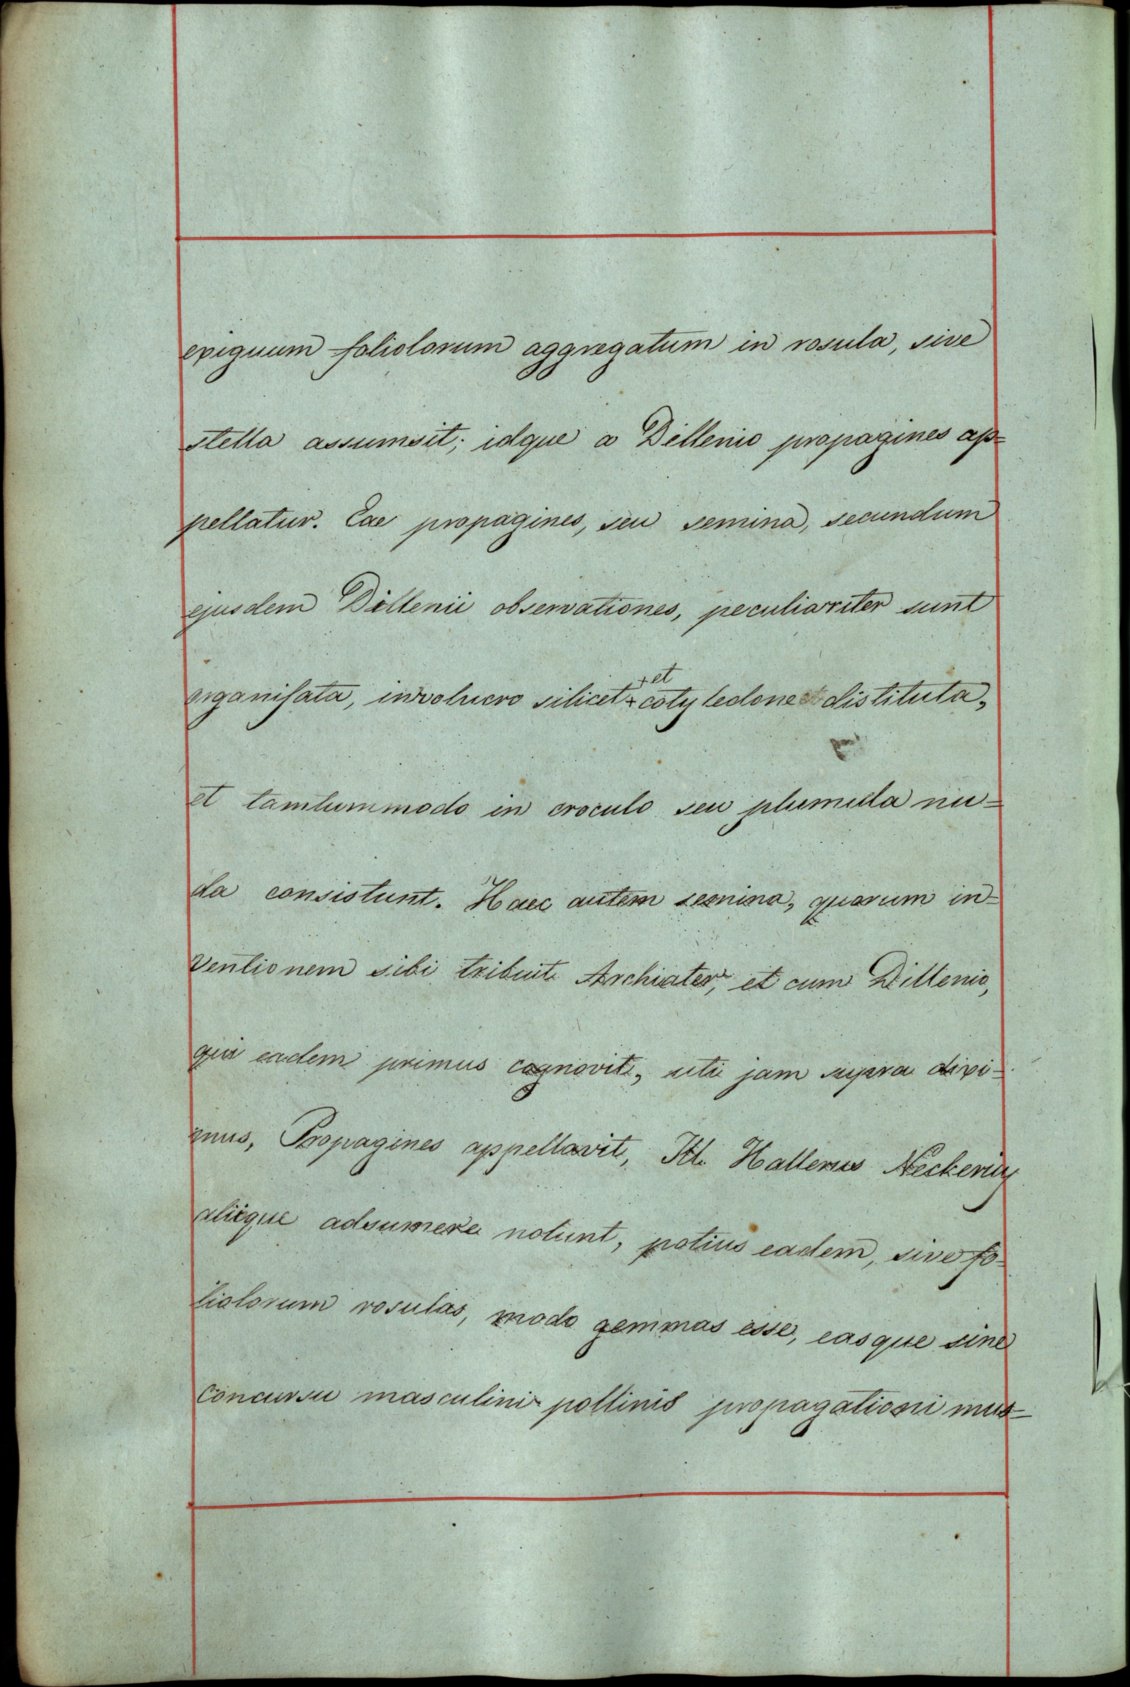 exiguum foliolorum aggregatum in rosula, sive
stella assumsit; idque a Dillenio propagines ap=
pellatur. Eae propagines, seu semina, secundum
ejusdem Dillenii observationes, peculiariter sunt
organisata, involucro silicet + cotyledone distituta,
+ et
et tamtummodo in croculo seu plumula nu=
da consistunt. Haec autem semina, quorum in=
ventionem sibi tribuit Archiater, et cum Dillenio,
qui eadem primus cognovit, uti jam supra dixi=
mus, Propagines appellavit, Ill. Hallerus Neckerus
aliique adsumere nolunt, potius eadem, sive fo=
liolorum rosulas, modo gemmas esse, easque sine
concursu masculini pollinis propagationi mus=